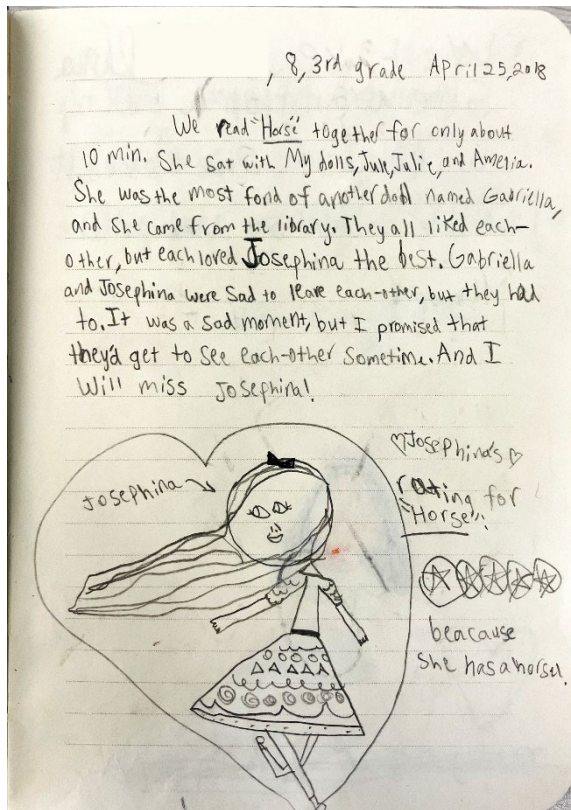 , 8, 3rd grade April 25, 2018
We read "Horse" together for only about
10 min. She sat with My dolls, Jule, Julie, and Amelia.
She was the most fond of another doll named Gabriella,
and she came from the library. They all liked each-
other, but each loved Josephina the best. Gabriella
and Josephina were sad to leave each-other, but they had
to. It was a sad moment, but I promised that
they'd get to see each-other sometime. And I
Will miss Josephina!
♡Josephina's♡
rating for
"Horse":
Josephina
beacause
she has a horse!